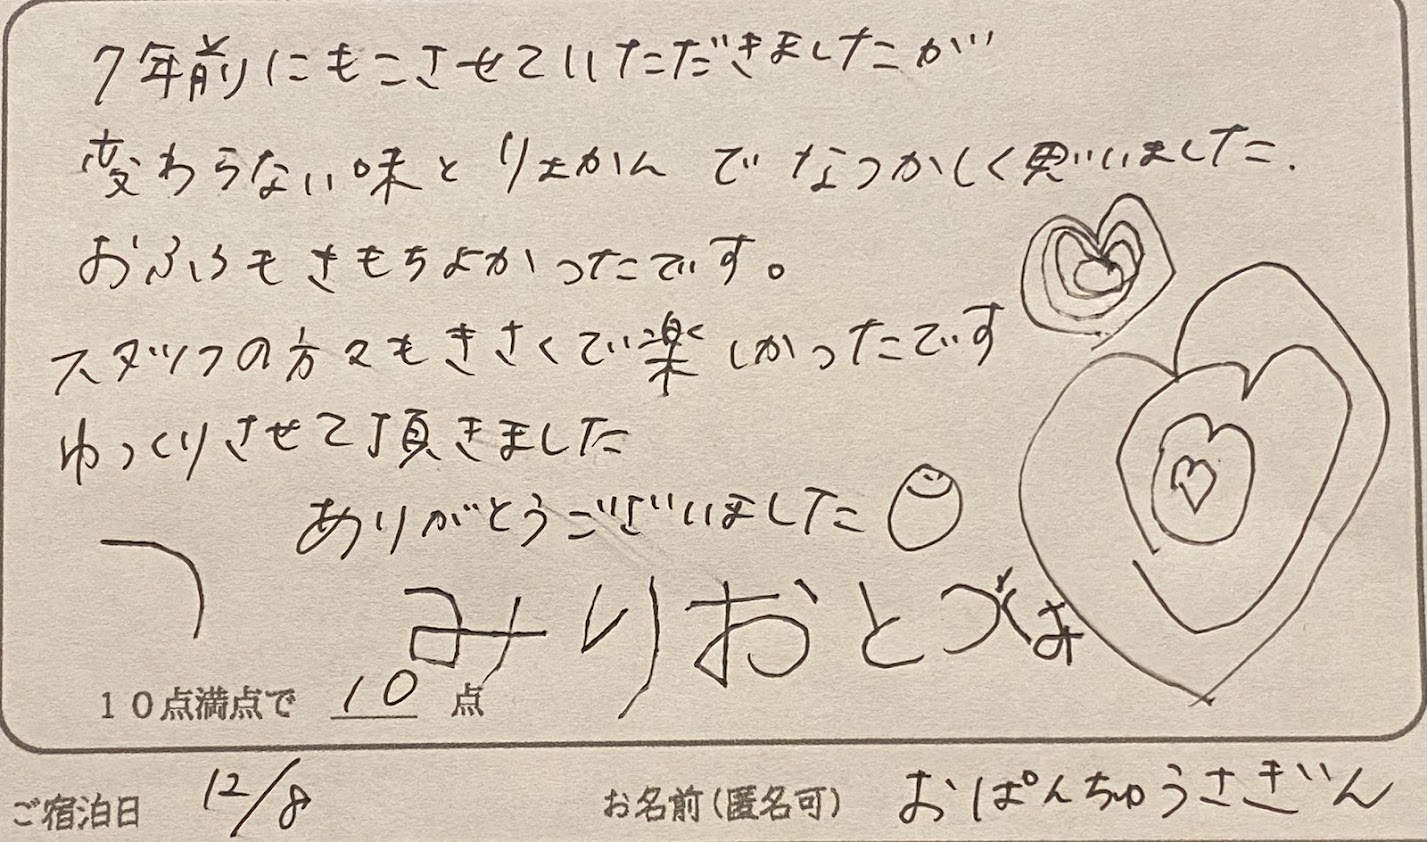 7年前にもこさせていただきましたが
変わらない味とりょかんでなつかしく思いいました.
おふろもきもちよかったです。
スタッフの方々もきさくで楽しかったです
ゆっくりさせて頂きました
ありがとうございました
みりおとづは
10点満点で 10 点
ご宿泊日 12/8 お名前(匿名可) おぱんちゅうさぎいん